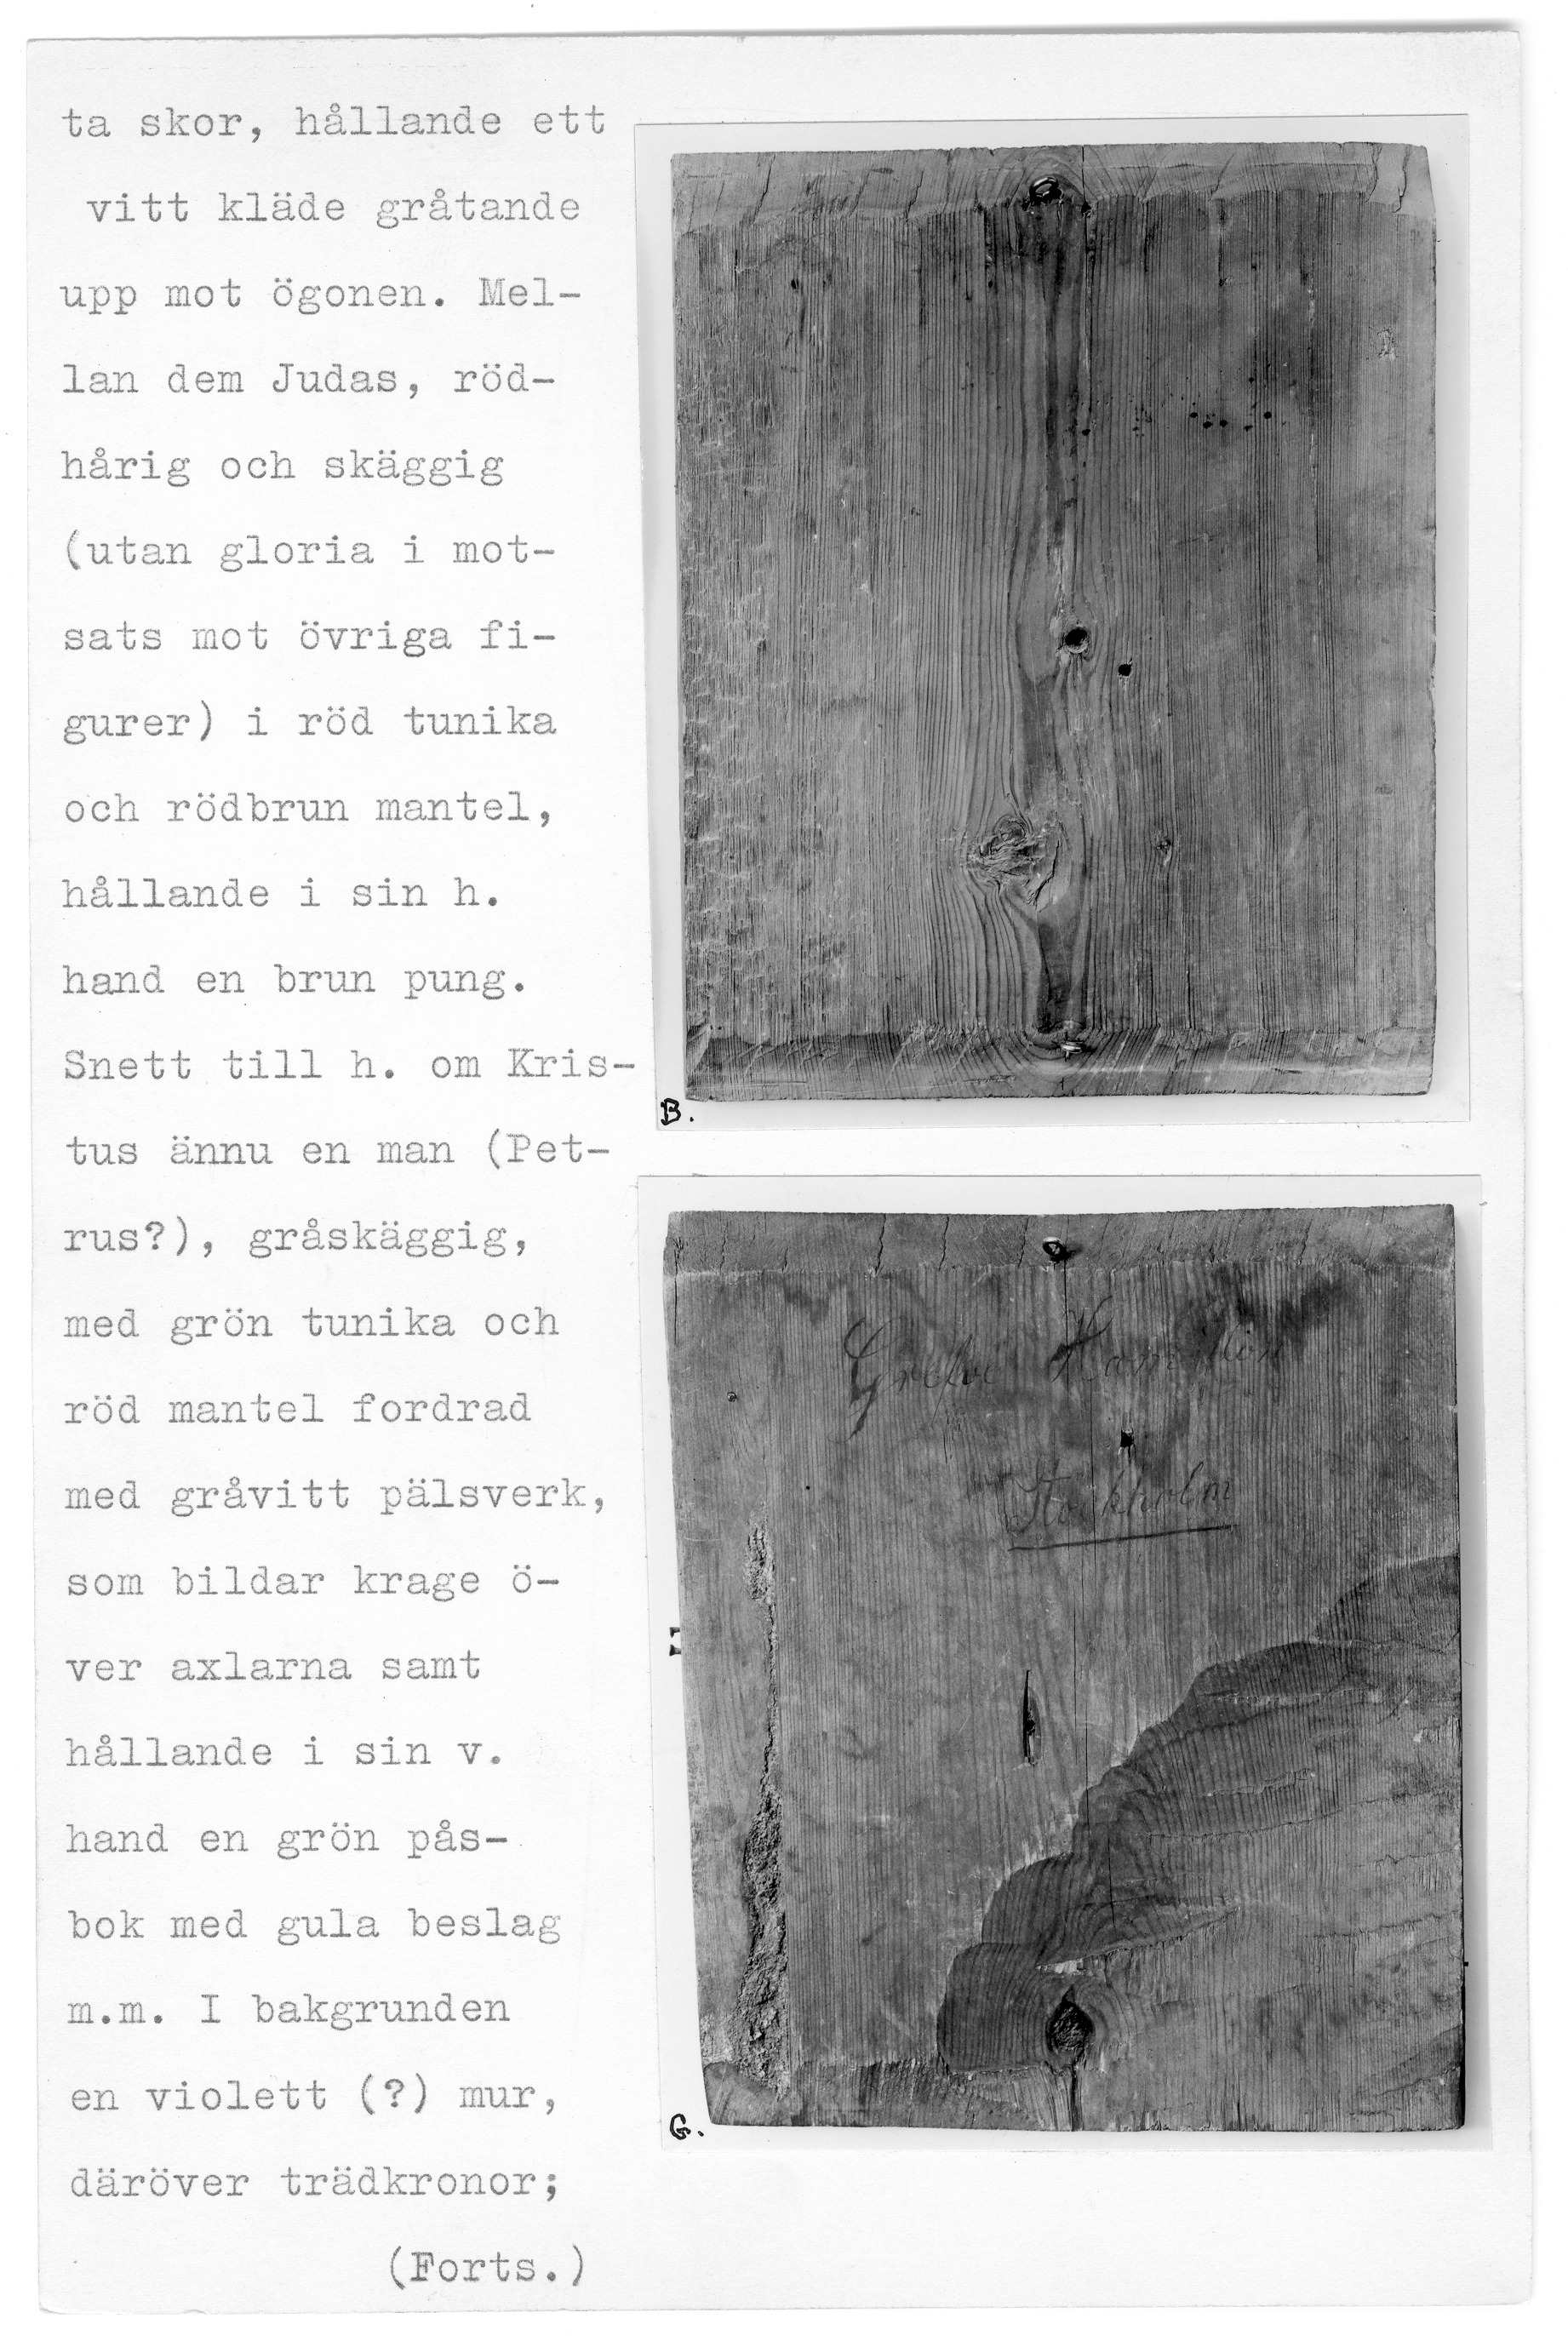 ta skor, hållande ett
vitt kläde gråtande
upp mot ögonen. Mel-
lan dem Judas, röd-
hårig och skäggig
(utan gloria i mot-
sats mot övriga fi-
gurer) i röd tunika
och rödbrun mantel,
hållande i sin h.
hand en brun pung.
Snett till h. om Kris-
tus ännu en man (Pet-
rus?), gråskäggig,
med grön tunika och
röd mantel fordrad
med gråvitt pälsverk,
som bildar krage ö-
ver axlarna samt
hållande i sin v.
hand en grön pås-
bok med gula beslag
m.m. I bakgrunden
en violett (?) mur,
däröver trädkronor;
(Forts.)
B.
Hamilton
Stockholm
G.